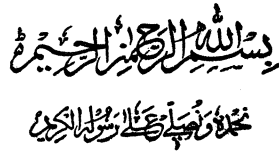 بِسْمِ اللهِ الرَّحْمٰنِ الرَّحِيْمِ
نحمدہ ونصلی علیٰ رسولہ الکریم